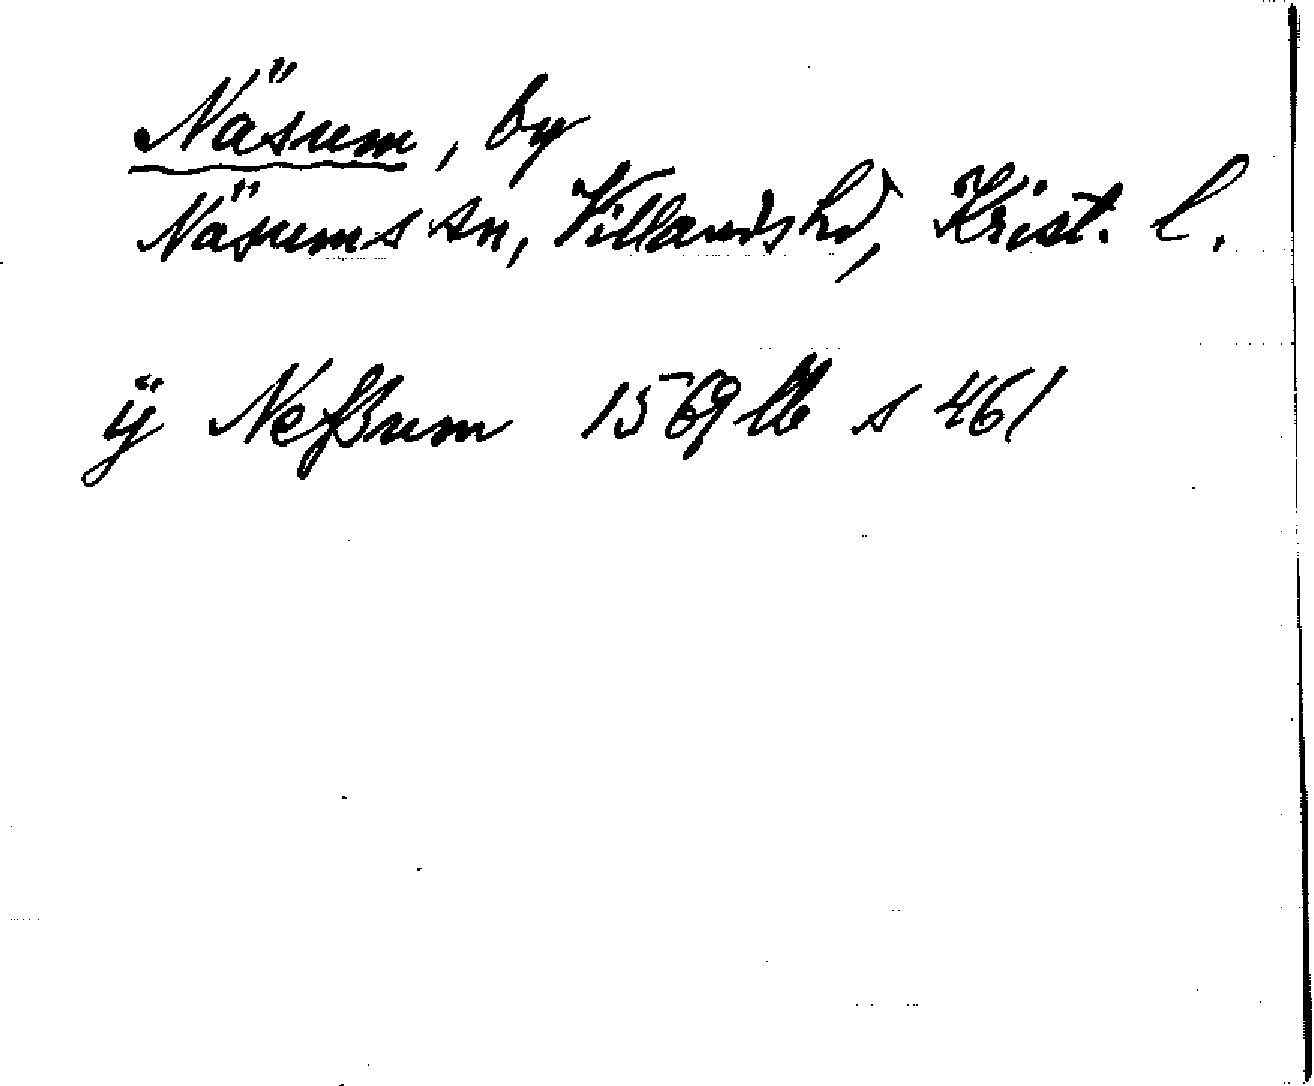 Näsum, by
Näsums sn, Villands hd, Krist. l.
ÿ Neßum 1569 lb s 461